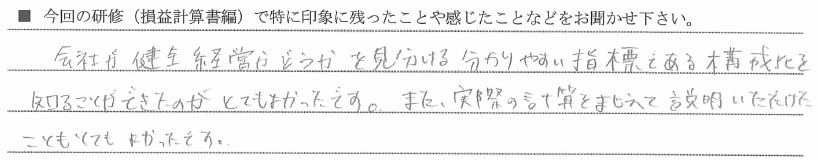 ■ 今回の研修（損益計算書編）で特に印象に残ったことや感じたことなどをお聞かせ下さい。
会社が健全経営かどうかを見分ける分かりやすい指標である構成比を
知ることができたのがとてもよかったです。また、実際の計算をまじえて説明いただけた
こともとてもよかったです。